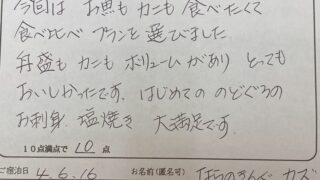 今回は お魚も カニも 食べたくて
食べ比べ プランを 選びました
舟盛も カニも ボリュームがあり とっても
おいしかったです。はじめての のどぐろの
お刺身、塩焼き 大満足です。
10点満点で 10 点
ご宿泊日 4.6.16 お名前(匿名可) カズ